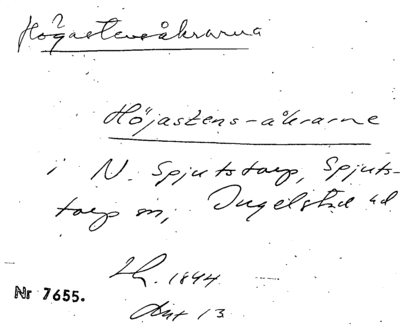 Högastensåkrarna
?
Höjastens-åkrarne
i N. Spjutstorp, Spjuts-
torp sn, Ingelstad hd
Lh. 1844
Akt 13
Nr 7655.